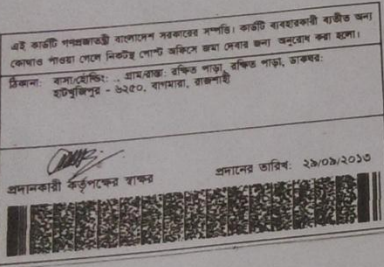 এই কার্ডটি গণপ্রজাতন্ত্রী বাংলাদেশ সরকারের সম্পত্তি। কার্ডটি ব্যবহারকারী ব্যতীত অন্য
কোথাও পাওয়া গেলে নিকটস্থ পোস্ট অফিসে জমা দেবার জন্য অনুরোধ করা হলো।
ঠিকানা: বাসা/হোল্ডিং: ., গ্রাম/রাস্তা: রক্ষিত পাড়া, রক্ষিত পাড়া, ডাকঘর:
হাটখুজিপুর - ৬২৫০, বাগমারা, রাজশাহী
প্রদানকারী কর্তৃপক্ষের স্বাক্ষর প্রদানের তারিখ: ২৯/০৯/২০১৩